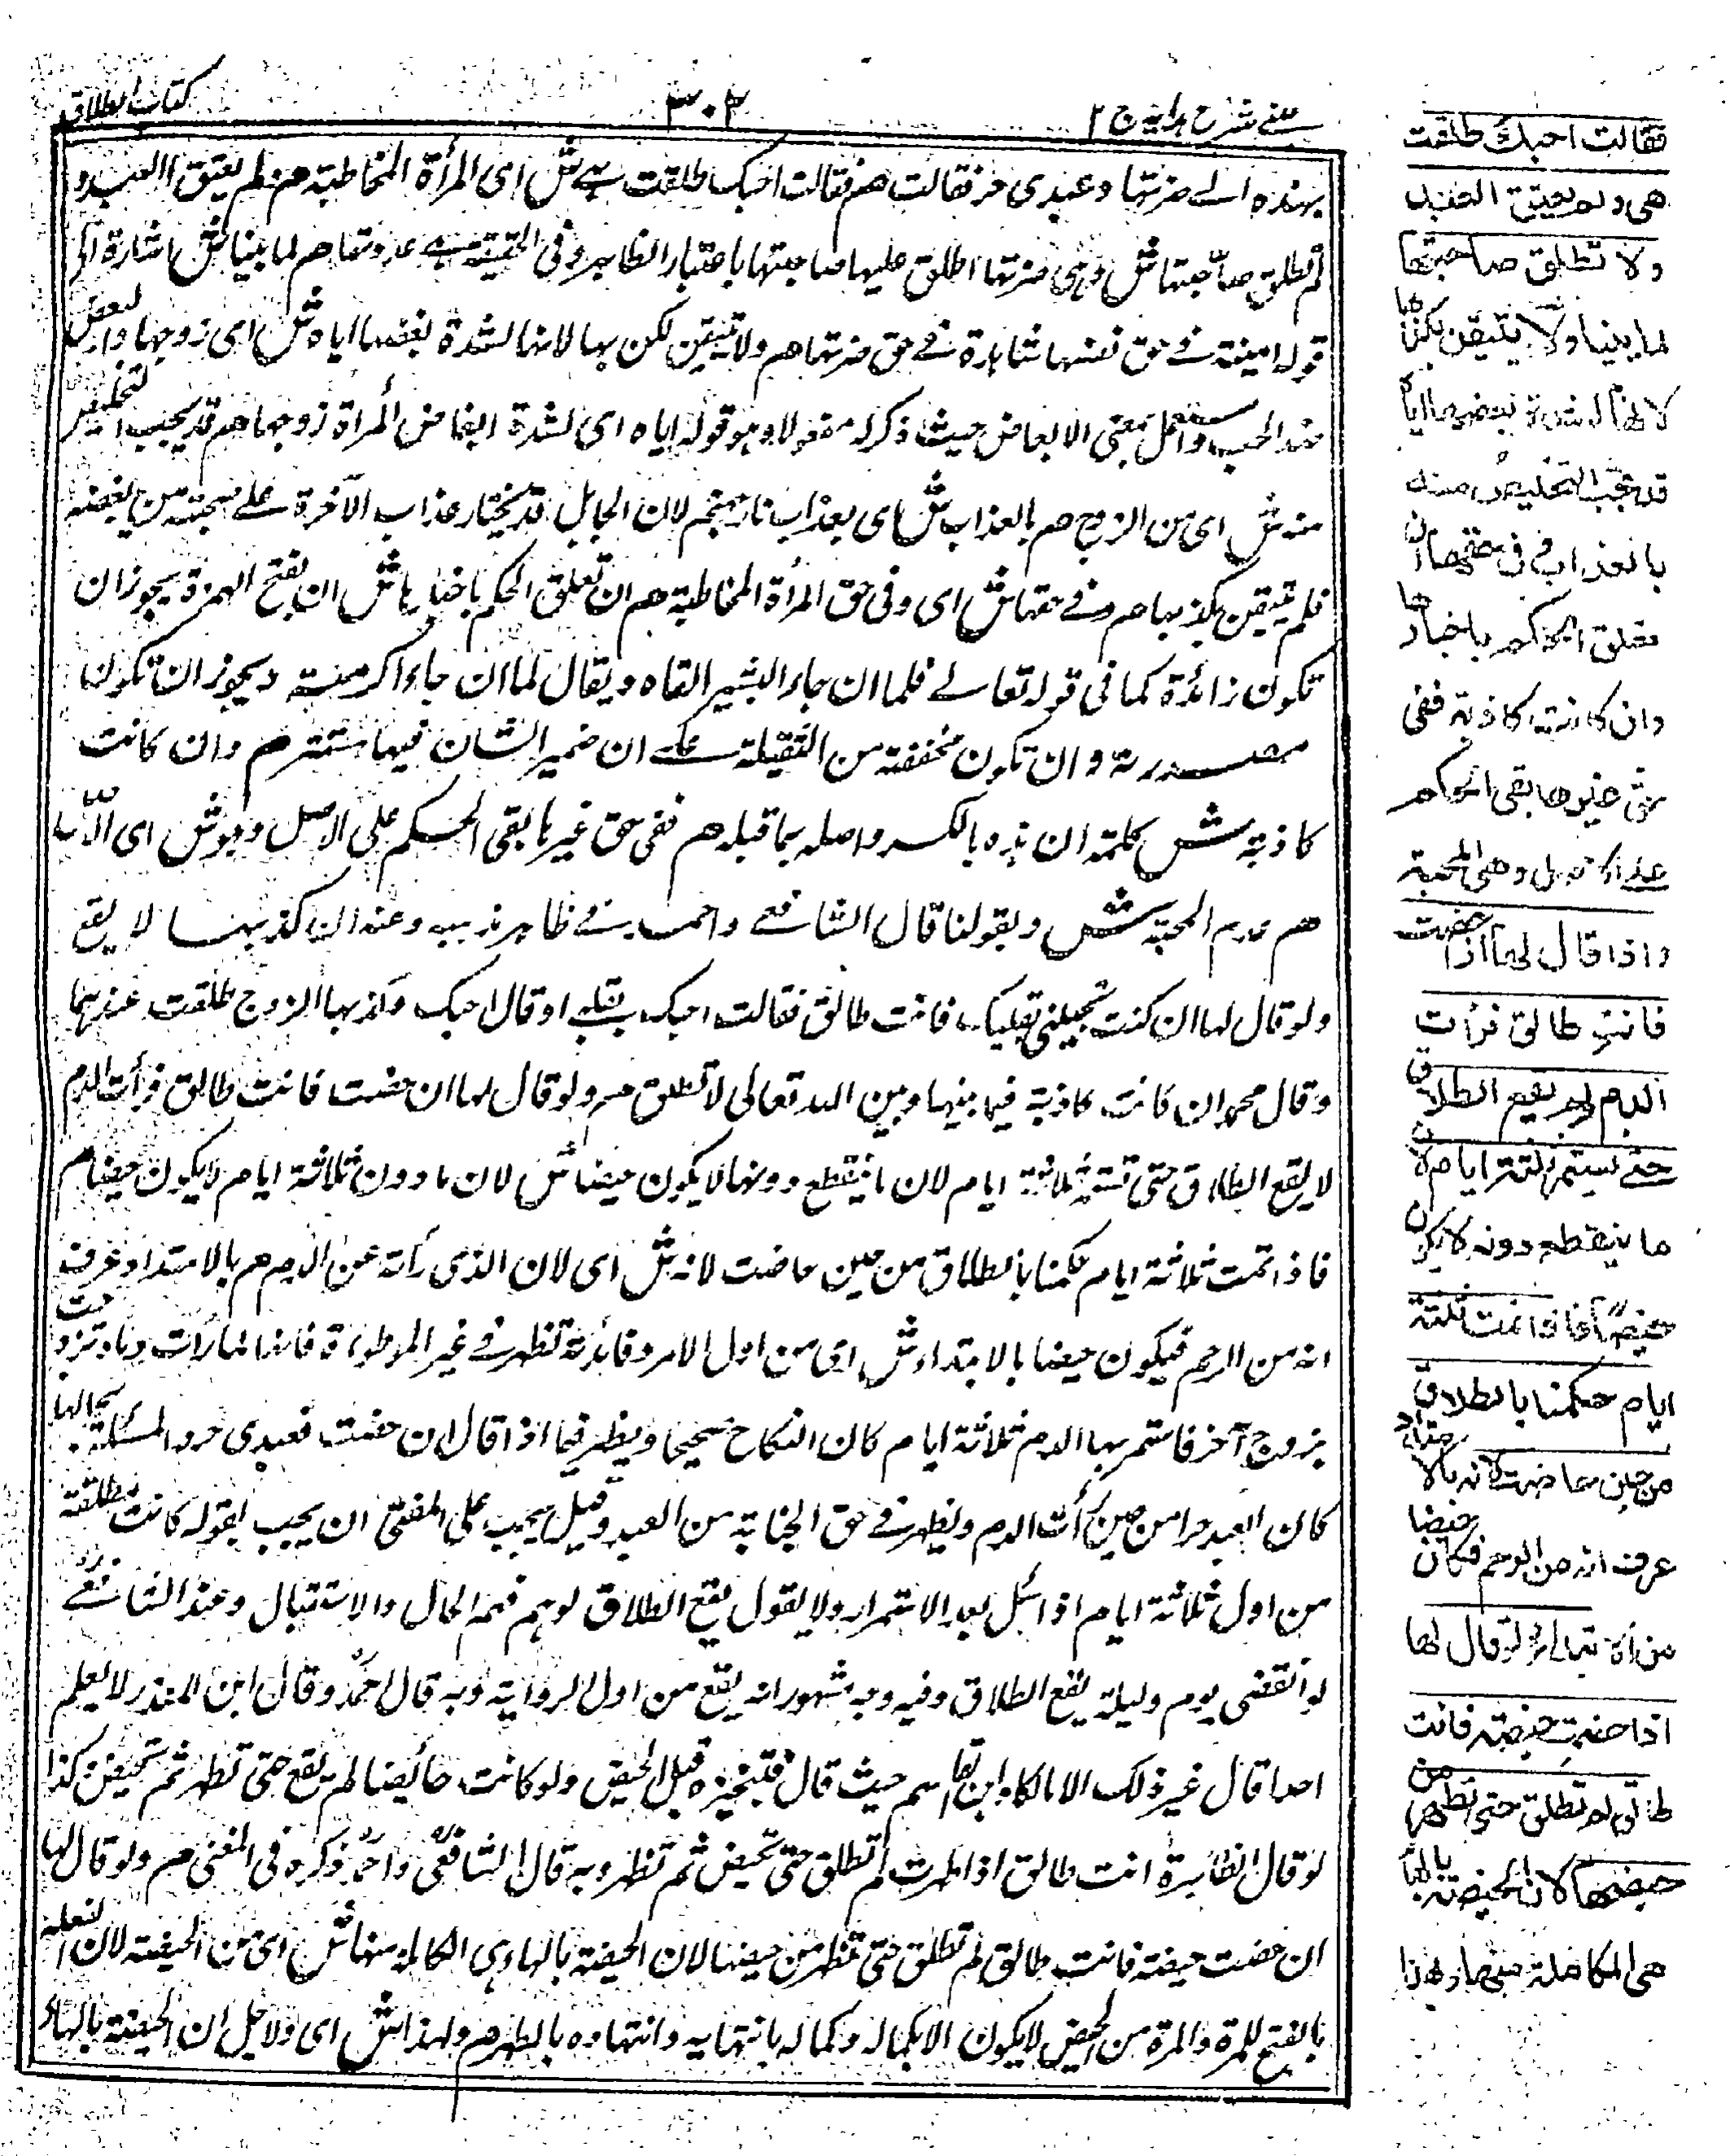 عينى شرح هداية ج ٢
٣٠٣
كتاب الطلاق
بهذه الى ضرتها وعبدى حر فقالت هم فقالت احبك طلقت هى ش اى المرأة المخاطبة هم ولم يعتق العبد و
لم تطلق صاحبتها ش وهى ضرتها اطلق عليها صاحبتها باعتبار الظاهر وفى الحقيقة هى عدوتها هم لما بينا ش اشارة الى
قوله امينة فى حق نفسها شاهدة فى حق ضرتها هم ولا تتيقن لكن بها لانها لشدة بغضها اياه ش اى زوجها والبغض
ضد الحب واستعمل بمعنى الابغاض حيث ذكر له مفعولا وهو قوله اياه اى لشدة ابغاض المرأة زوجها هم قد يحب التخليص
منه ش اى من الزوج هم بالعذاب ش اى بعذاب نار جهنم لان الجاهل قد يختار عذاب الآخرة على صحبته من يبغضه
فلم تتيقن بكذبها هم وفى حقها ش اى وفى حق المرأة المخاطبة هم ان تعلق الحكم باخبارها ش ان بفتح الهمزة يجوز ان
تكون زائدة كما فى قوله تعالى فلما ان جاء البشير القاه ويقال لما ان جاء اكرمته ويجوز ان تكون
مصدرية وان تكون مخففة من الثقيلة على ان ضمير الشان فيها مستتر هم وان كانت
كاذبة ش كلمة ان هذه بالكسر واصله بما قبله هم ففى حق غيرها بقى الحكم على الاصل وهو ش اى الاصل
هم عدم المحبة ش وبقولنا قال الشافعى واحمد فى ظاهر مذهبه وعند ان كذبها لا يقع
ولو قال لها ان كنت تحبينى بقلبك فانت طالق فقالت احبك بقلبى او قال احبك وكذبها الزوج طلقت عندهما
وقال محمد ان كانت كاذبة فيما بينها وبين الله تعالى لا تطلق هم ولو قال لها ان حضت فانت طالق فرأت الدم
لا يقع الطلاق حتى تستمر ثلاثة ايام لان ما ينقطع دونها لا يكون حيضا ش لان ما دون ثلاثة ايام لا يكون حيضا هم
فاذا تمت ثلاثة ايام حكمنا بالطلاق من حين حاضت لانه ش اى لان الذى رأته عن الدم هم بالامتداد عرف
انه من الرحم فيكون حيضا بالابتداء ش اى من اول الامر وفائدته تظهر فى غير الموطوءة فانها لما رأت دما وتزوجت
بزوج آخر فاستمر بها الدم ثلاثة ايام كان النكاح صحيحا ويظهر فيما اذا قال ان حضت فعبدى حر والمسئلة بحالها
كان العبد حرا من حين رأت الدم ويظهر فى حق الجناية من العبد وقيل يجب على المفتى ان يجيب بقوله كانت مطلقة
من اول ثلاثة ايام اذا سئل بعد الاستمرار ولا يقول يقع الطلاق لوهم فهمه الحال والاستقبال وعند الشافعى
لو انقضى يوم وليلة يقع الطلاق وفيه وجه مشهور انه يقع من اول الرواية وبه قال احمد وقال ابن المنذر لا يعلم
احدا قال غير ذلك الا مالكا وابن القاسم حيث قال فتنجيزه قبل الحيض ولو كانت حائضا لم يقع حتى تطهر ثم تحيض وكذا
لو قال لطاهرة انت طالق اذا طهرت لم تطلق حتى تحيض ثم تطهر وبه قال الشافعى واحمد ذكره فى المغنى هم ولو قال لها
ان حضت حيضة فانت طالق لم تطلق حتى تطهر من حيضها لان الحيضة بالهاء هى الكاملة منها ش اى من الحيضة لان الفعلة
بالفتح للمرة والمرة من الحيض لا يكون الا بكماله وكماله بانتهائه وانتهاؤه بالطهر هم ولهذا ش اى ولاجل ان الحيضة بالهاء
فقالت احبك طلقت
هى ولم يعتق العبد
ولا تطلق صاحبتها
لما بينا ولا يتيقن بكذبها
لانها لشدة بغضها اياه
قد تحب التخليص منه
بالعذاب وفى حقها ان
تعلق الحكم باخبارها
وان كانت كاذبة ففى
حق غيرها بقى الحكم
على الاصل وهى المحبة
واذا قال لها اذا حضت
فانت طالق فرأت
الدم لم يقع الطلاق
حتى يستمر ثلثة ايام لان
ما ينقطع دونه لا يكون
حيضا فاذا تمت ثلثة
ايام حكمنا بالطلاق
من حين حاضت لانه بالامتداد
عرف انه من الرحم فكان حيضا
من الابتداء ولو قال لها
اذا حضت حيضة فانت
طالق لم تطلق حتى تطهر من
حيضها لان الحيضة بالهاء
هى الكاملة منها ولهذا